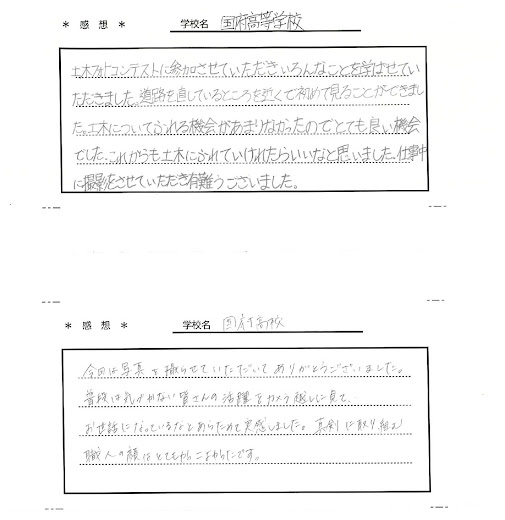 ＊ 感 想 ＊ 学校名 国府高等学校
土木フォトコンテストに参加させていただきいろんなことを学ばせてい
ただきました。道路を直しているところを近くで初めて見ることができまし
た。土木についてふれる機会があまりなかったのでとても良い機会
でした。これからも土木にふれていけれたらいいなと思いました。仕事中
に撮影をさせていただき有難うございました。
＊ 感 想 ＊ 学校名 国府高校
今回は写真を撮らせていただいてありがとうございました。
普段は気づかない皆さんの活躍をカメラ越しに見て、
お世話になっているなとあらためて実感しました。真剣に取り組む
職人の顔はとてもかっこよかったです。